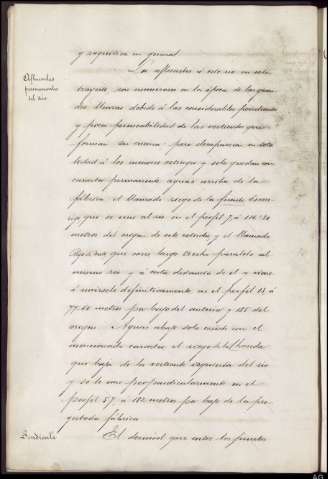 y arquitectura en general.
Afluentes
permanentes
del rio
Los afluentes á este rio en este
trayecto, son numerosos en la época de las gran-
des lluvias debido á las considerables pendientes
y poca permeabilidad de las vertientes que
forman su cuenca pero desaparecen en su to-
talidad á los menores estiages y solo quedan con
caracter permanente aguas arriba de la
fábrica el llamado riego de la fuente
que se une al rio en el perfil 7 á
metros del origen de este estudio y el llamado
que corre largo trecho paralelo al
mismo rio y á corta distancia de él y viene
á unirsele definitivamente en el perfil
metros por bajo del anterior y 185 del
origen. Aguas abajo solo existe con el
mencionado caracter el
que baja de la vertiente izquierda del rio
y se le une perpendicularmente en el
perfil 57 á 182 metros por bajo de la pro-
yectada fábrica.
Pendiente
El desnivel que entre los puntos